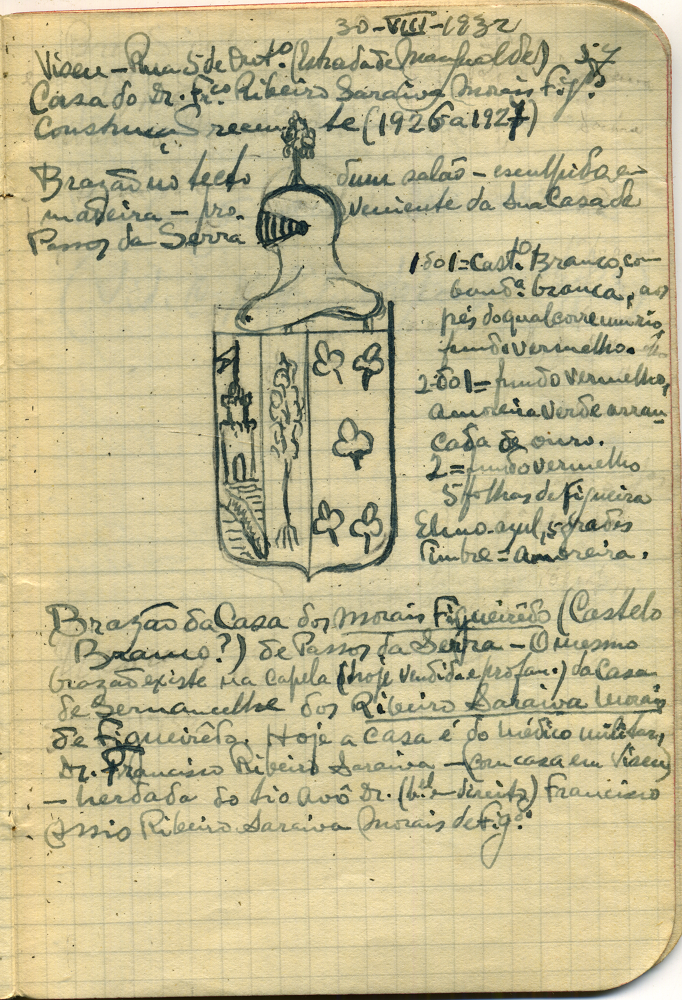 30-VIII-1932
57
Viseu - Rua 5 de Outº (Estrada de Mangualde)
Casa do Dr. Frco Ribeiro Saraiva Morais Figº
Construção recente (1926 a 1927)
Brazão no tecto dum salão - esculpido em
madeira - proveniente da sua Casa de
Passos da Serra
1 do 1 = Castº Branco, com
bandª branca, aos
pés do qual corre um rio,
fundo vermelho.
2 do 1 = fundo vermelho,
amoreira verde arran-
cada de ouro.
2 = fundo vermelho
5 folhas de figueira
Elmo-azul, 5 grades
Timbre = amoreira.
Brazão da Casa dos Morais Figueirêdo (Castelo
Branco?) de Passos da Serra - O mesmo
brazão existe na capela (hoje vendida e profan.) da Casa
de Sernancelhe dos Ribeiro Saraiva Morais
de Figueirêdo. Hoje a casa é do médico militar,
Dr. Francisco Ribeiro Saraiva - (com casa em Viseu)
- herdada do tio avô Dr. (bel - direito) Francisco
Assis Ribeiro Saraiva Morais de Figº